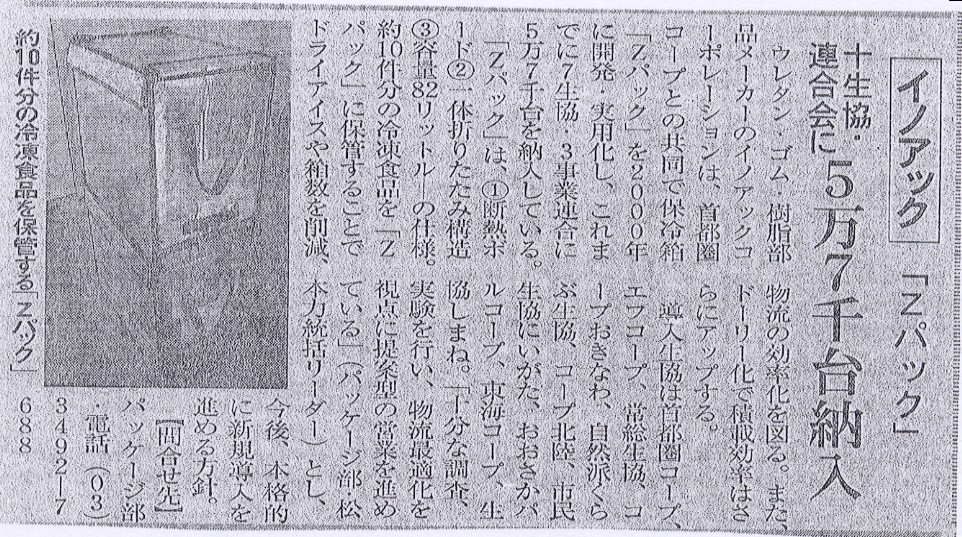 イノアック
「Zパック」
十生協・
連合会に
5万7千台納入
ウレタン・ゴム・樹脂部
品メーカーのイノアックコ
ーポレーションは、首都圏
コープとの共同で保冷箱
「Zパック」を2000年
に開発・実用化し、これま
でに7生協・3事業連合に
5万7千台を納入している。
「Zパック」は、①断熱ボ
ード②一体折りたたみ構造
③容量82リットルーの仕様。
約10件分の冷凍食品を「Z
パック」に保管することで
ドライアイスや箱数を削減、
物流の効率化を図る。また、
ドーリー化で積載効率はさ
らにアップする。
導入生協は首都圏コープ、
エフコープ、常総生協、コ
ープおきなわ、自然派くら
ぶ生協、コープ北陸、市民
生協にいがた、おおさかパ
ルコープ、東海コープ、生
協しまね。「十分な調査、
実験を行い、物流最適化を
視点に提案型の営業を進め
ている」（パッケージ部・松
本力統括リーダー）とし、
今後、本格的
に新規導入を
進める方針。
【問合せ先】
パッケージ部
・電話（03）
3492―7
688
約10件分の冷凍食品を保管する「Zパック」